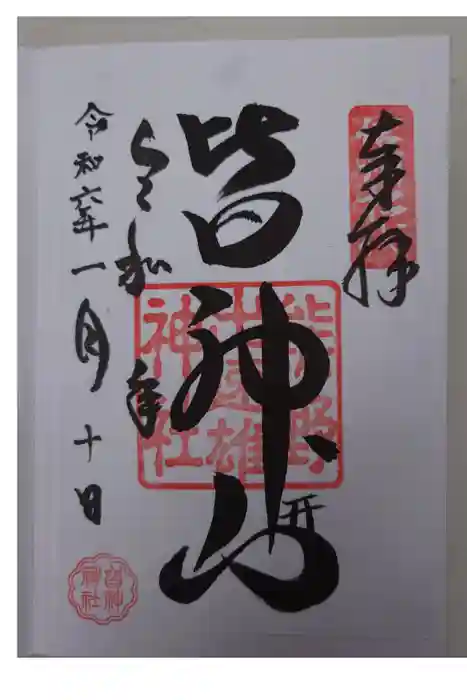 奉拝
皆神山
开
熊野
出速雄
神社
令和六年一月十日
皆神
神社